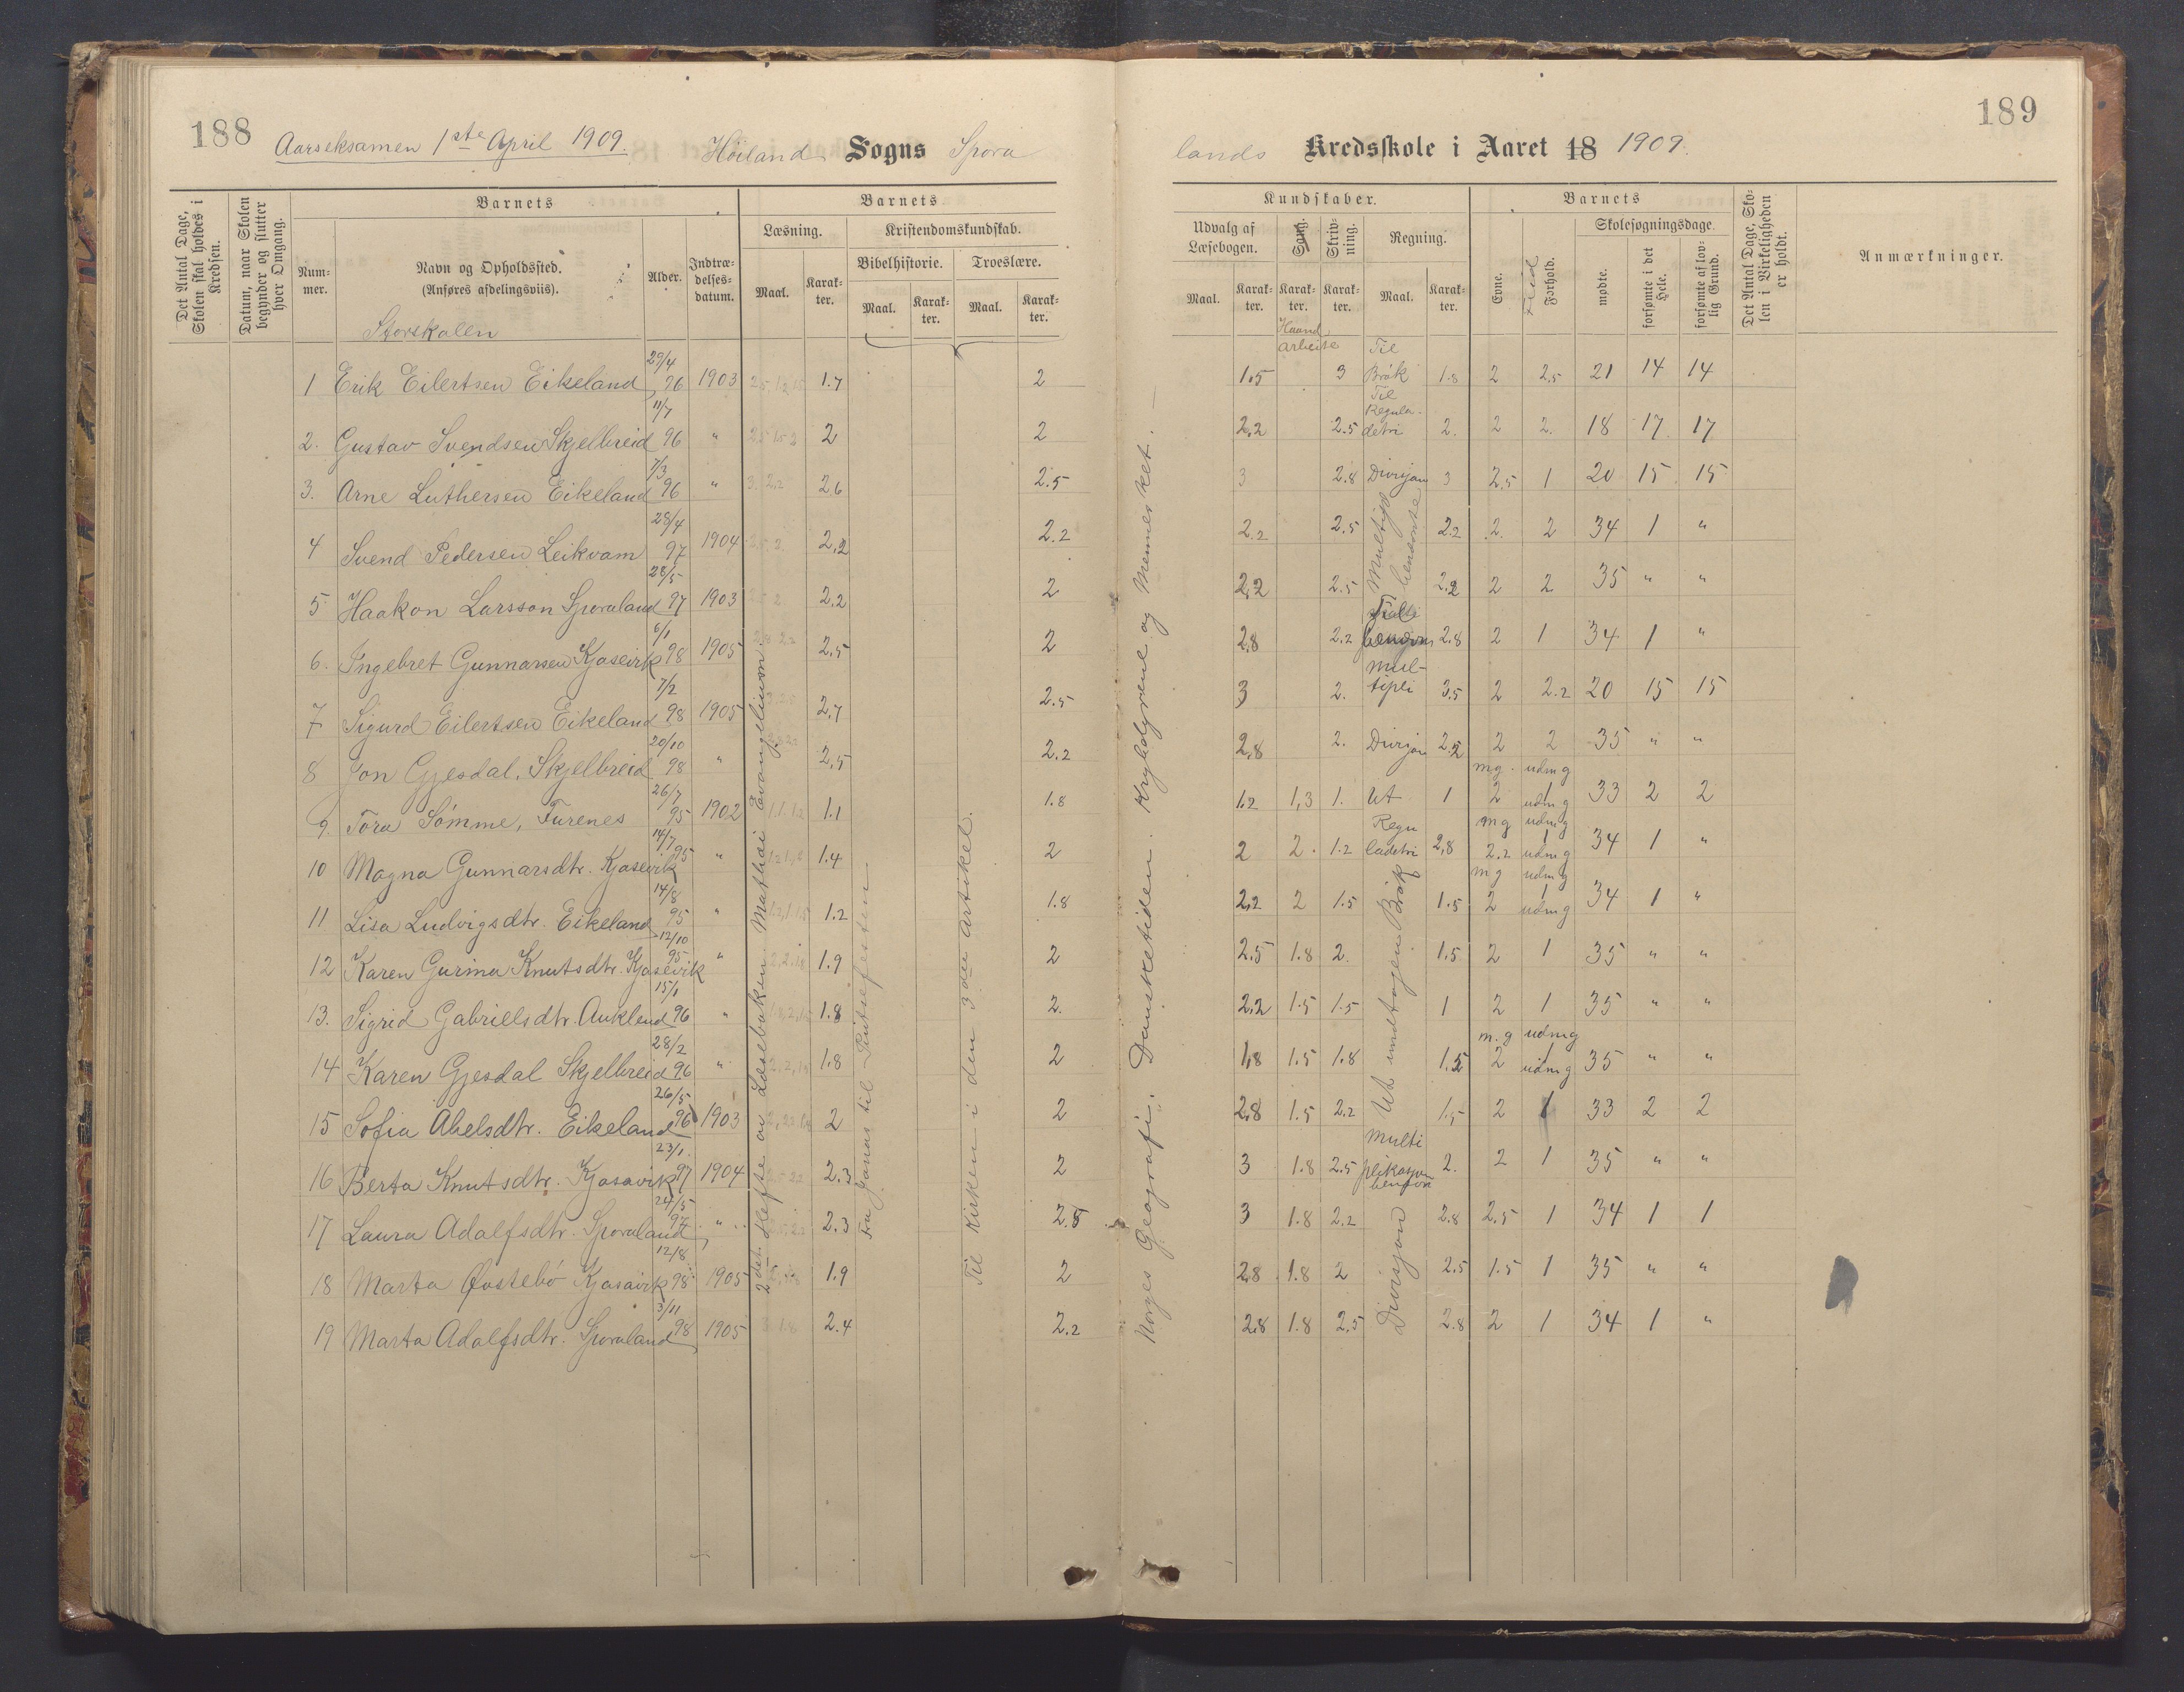 188
Aarseksamen 1ste April 1909.
Höiland Sogns Spora
lands Kredsskole i Aaret 18 1909.
189
Det Antal Dage, Skolen skal holdes i Kredsen.
Datum, naar Skolen begynder og slutter hver Omgang.
Barnets
Nummer.
Navn og Opholdssted.
(Anføres afdelingsviis).
Alder.
Indtrædelsesdatum.
Barnets
Læsning.
Maal.
Karakter.
Kristendomskundskab.
Bibelhistorie.
Maal.
Karakter.
Troeslære.
Maal.
Karakter.
Kundskaber.
Udvalg af Læsebogen.
Maal.
Karakter.
Sang.
Karakter.
Skrivning.
Karakter.
Regning.
Maal.
Karakter.
Barnets
Evne.
Flid
Forhold.
Skolesøgningsdage.
mødte.
forsømte i det Hele.
forsømte af lovlig Grund.
Det Antal Dage, Skolen i Virkeligheden er holdt.
Anmærkninger.
Storskolen
Haandarbeite
1 Erik Eilertsen Eikeland 29/4 96 1903 1.7 2 1.5 3 Til Brök 1.8 2 2.5 21 14 14
2. Gustav Svendsen Skjelbreid 11/7 96 " 2 2 2,2 2.5 Til Reguladetri 2. 2 2. 18 17 17
3. Arne Luthersen Eikeland 7/3 96 " 2.6 2.5 3 2.8 Divisjon 3 2.5 1 20 15 15
4 Svend Pedersen Leikvam 28/4 97 1904 2,2 2.2 2.2 2.5 2.2 2. 2 34 1 "
5 Haakon Larsson Sporaland 28/5 97 1903 2.2 2 2,2 2.5 2.2 2 2 35 " "
6. Ingebret Gunnarsen Kjosevik 6/1 98 1905 2.5 2 2.8 2.2 2.8 2 1 34 1 "
7 Sigurd Eilertsen Eikeland 7/2 98 1905 2,7 2.5 3 2. Multipli 3.5 2 2.2 20 15 15
8 Jon Gjesdal, Skjelbreid 20/10 98 " 2,5 2.2 2,8 2. Divisjon 2.2 2 2 35 " "
9. Tora Sömme, Furenes 26/7 95 1902 1.1 1.8 1.2 1,3 1. Ut 1 mg 2 udmg 1 udmg 33 2 2
10 Magna Gunnarsdtr. Kjosevik 14/7 95 " 1.4 2 2 2. 1.2 Reguladetri 2,8 mg 2.2 udmg 1 udmg 34 1 "
11 Lisa Ludvigsdtr. Eikeland 14/8 95 " 1.2 1.8 2,2 2 1.5 1.5 mg 2 udmg 1 udmg 34 1 "
12 Karen Gurina Knutsdtr. Kjosevik 12/10 95 " 1.9 2 2.5 1.8 2. 1.5 2 1 35 " "
13. Sigrid Gabrielsdtr. Auklend 15/1 96 " 1.8 2. 2,2 1.5 1.5 1 2 1 35 " "
14 Karen Gjesdal Skjelbreid 28/2 96 " 1.8 2 1,8 1.5 1.8 1.5 m.g 2 udmg 1 udmg 35 " "
15 Sofia Abelsdtr. Eikeland 26/5 96 1903 2 2 2,8 1.5 2.2 1.5 2 1 33 2 2
16 Berta Knutsdtr. Kjosavik 23/1 97 1904 2.3 2 3 1.8 2.5 Multiplikasjon 2. 2 1 35 " "
17 Laura Adolfsdtr. Sporaland 24/5 97 " 2.3 2.5 3 1.8 2.2 2.8 2.5 1 34 1 1
18 Marta Östebö Kjosavik 12/8 98 1905 1.9 2 2,8 1.8 2 2.5 1.5 1 35 " "
19 Marta Adolfsdtr. Sporaland 3/11 98 1905 2.4 2.2 2,8 1.8 2,5 2.8 2 1 34 1 "
2det Hefte av Læseboken Mathæi Evangelium.
Fra Jonas til Pintsefesten
Til Kirken i den 3die Artikel.
Norges Geografi. Dansketiden. Krybdyrene og Mennesket.
Ut undtagen Brök
Divisjon